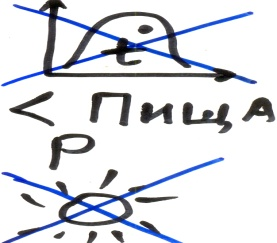 t
< ПИЩА
P